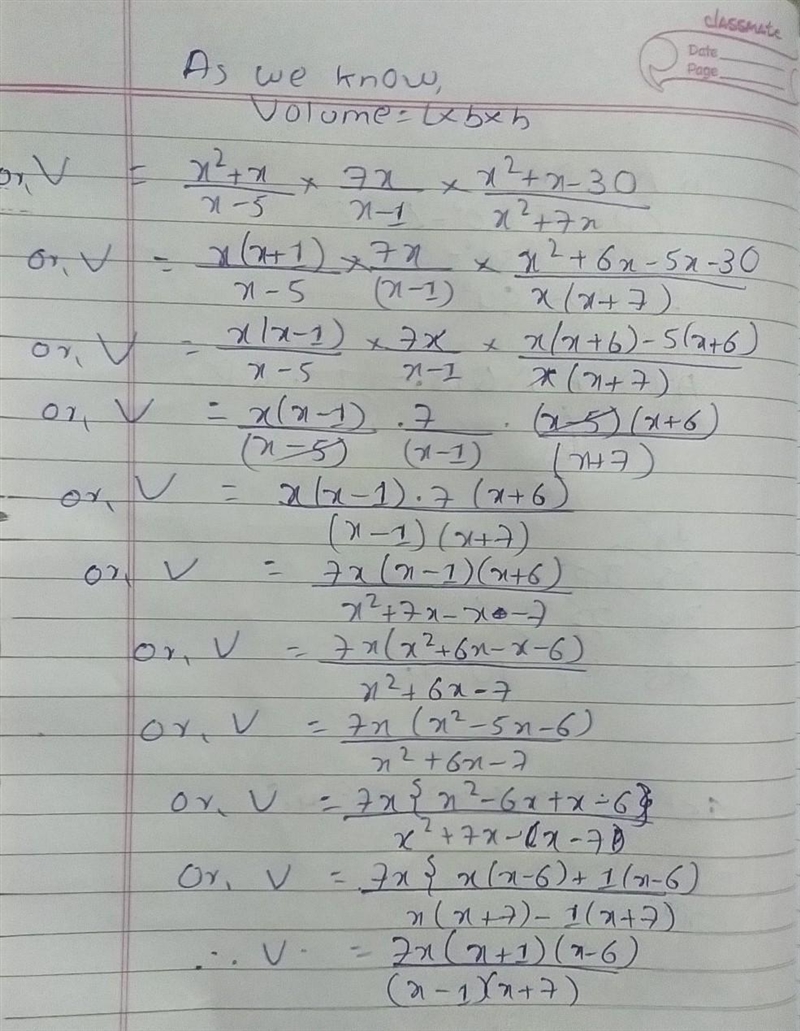 classmate
Date
Page
As we know,
Volume = l×b×h
or, V = (x²+x)/(x-5) × 7x/(x-1) × (x²+x-30)/(x²+7x)
or, V = x(x+1)/(x-5) × 7x/(x-1) × (x²+6x-5x-30)/(x(x+7))
or, V = x(x-1)/(x-5) × 7x/(x-1) × (x(x+6)-5(x+6))/(x(x+7))
or, V = x(x-1)/(x-5) . 7/(x-1) . (x-5)(x+6)/(x+7)
or, V = x(x-1).7(x+6)/((x-1)(x+7))
or, V = 7x(x-1)(x+6)/(x²+7x-x-7)
or, V = 7x(x²+6x-x-6)/(x²+6x-7)
or, V = 7x(x²-5x-6)/(x²+6x-7)
or, V = 7x{x²-6x+x-6}/(x²+7x-(x-7))
or, V = 7x{x(x-6)+1(x-6)/(x(x+7)-1(x+7))
∴ V = 7x(x+1)(x-6)/((x-1)(x+7))